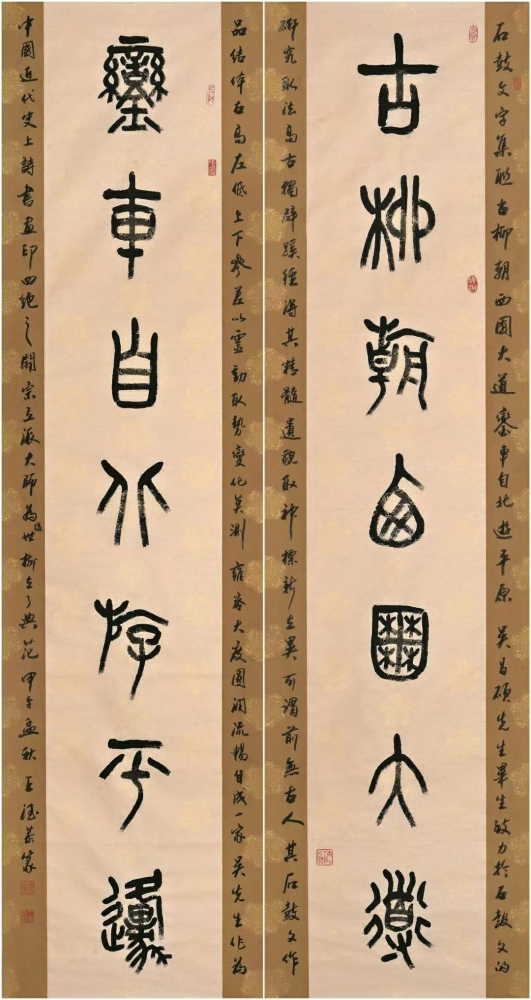 石鼓文字集联古柳朝西囿大道鑾車自北遊平原 吴昌碩先生畢生致力於石鼓文的
古柳朝西囿大道
研究取法高古獨辟蹊徑得其精髓遺貌取神標新立異可謂前無古人其石鼓文作
品结体右高左低上下參差以靈動取勢變化莫測雍容大度圓潤流暢自成一家吴先生作為
鑾車自北斿平邍
中國近代史上詩書画印四绝之開宗立派大師為後世樹立了典范甲午孟秋王恭篆